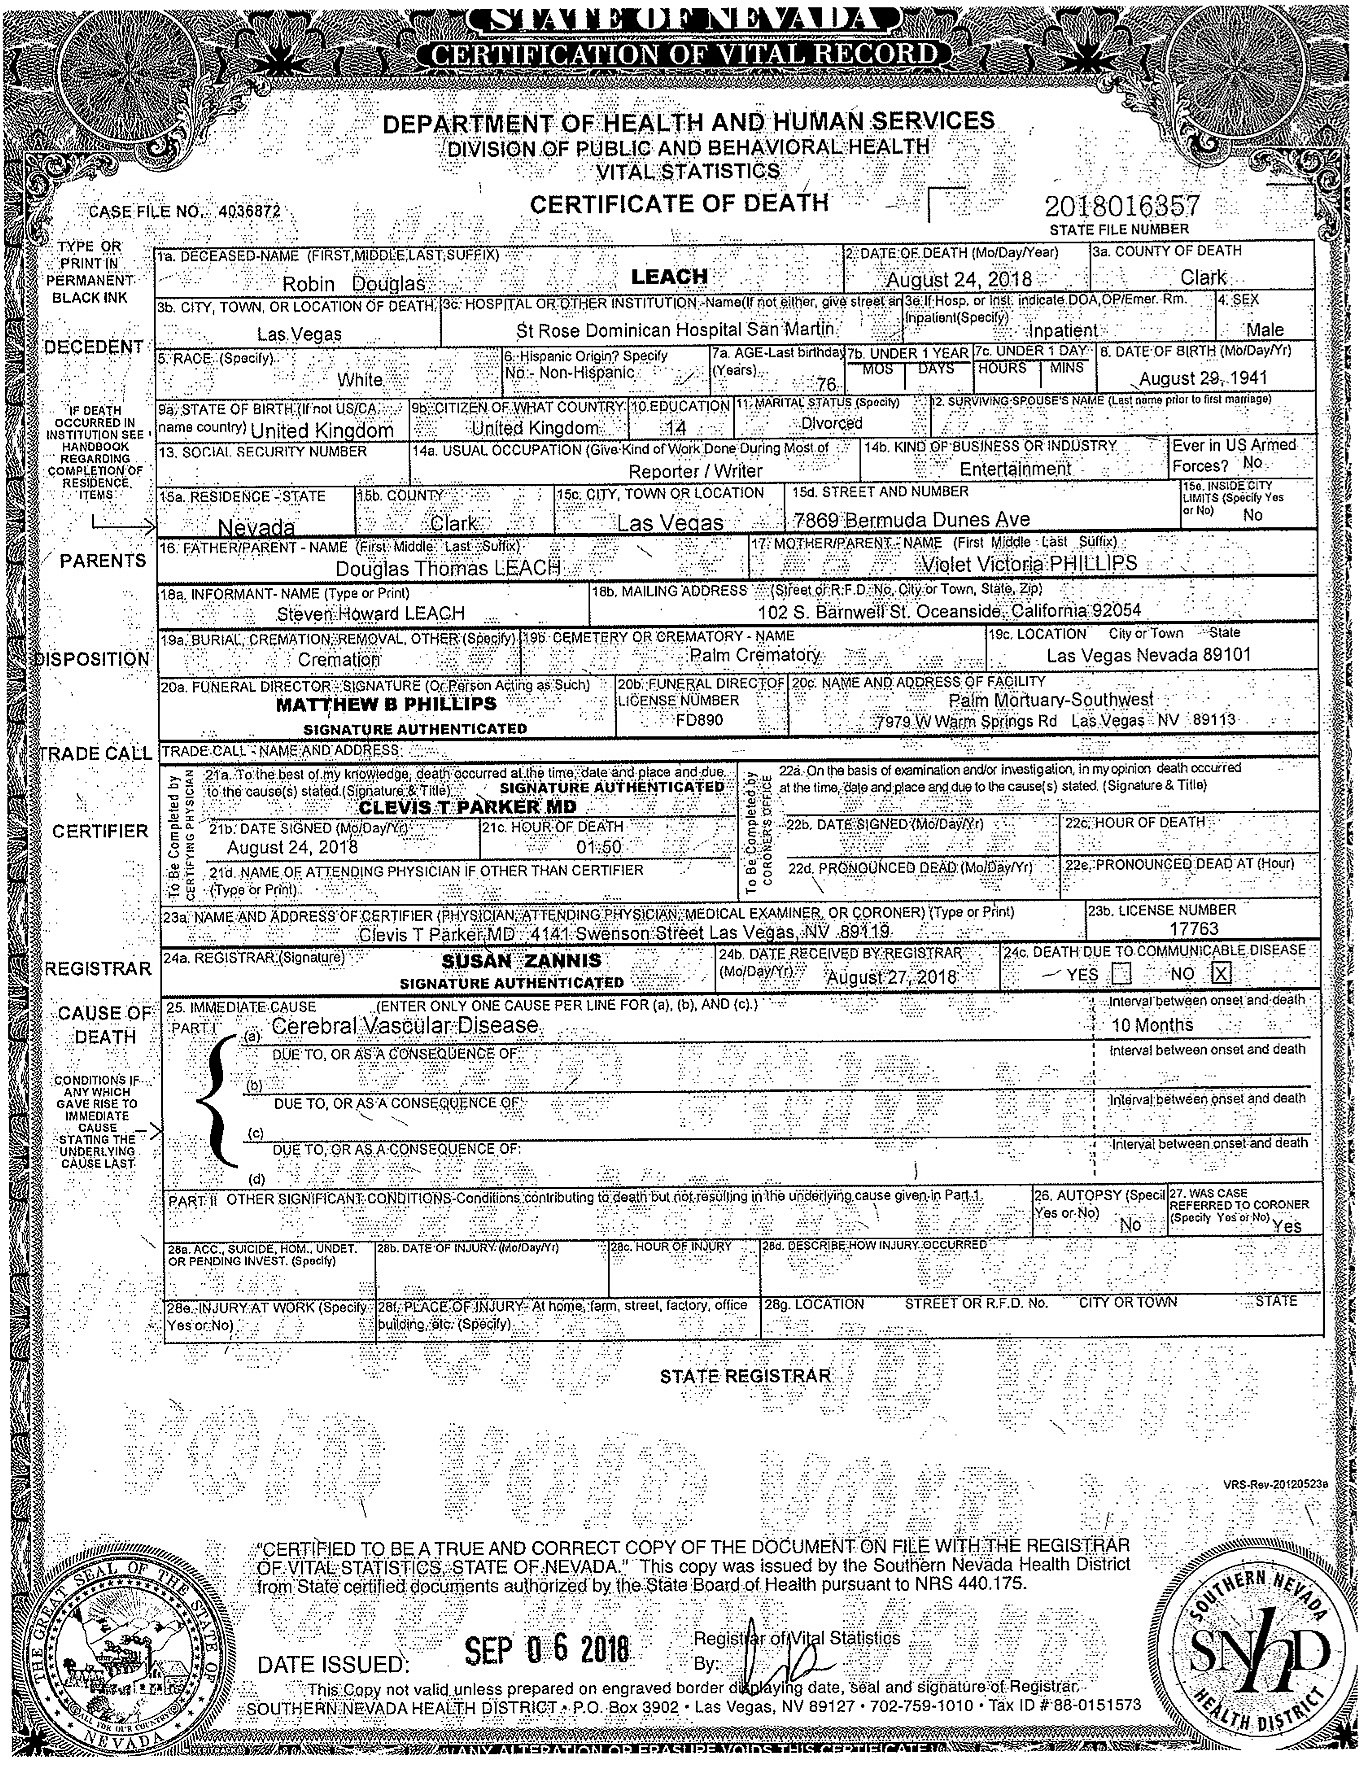 STATE OF NEVADA
CERTIFICATION OF VITAL RECORD
DEPARTMENT OF HEALTH AND HUMAN SERVICES
DIVISION OF PUBLIC AND BEHAVIORAL HEALTH
VITAL STATISTICS
CASE FILE NO. 4036872
CERTIFICATE OF DEATH
2018016357
STATE FILE NUMBER
TYPE OR PRINT IN PERMANENT BLACK INK
1a. DECEASED-NAME (FIRST,MIDDLE,LAST,SUFFIX)
Robin Douglas LEACH
2. DATE OF DEATH (Mo/Day/Year)
August 24, 2018
3a. COUNTY OF DEATH
Clark
DECEDENT
3b. CITY, TOWN, OR LOCATION OF DEATH
Las Vegas
3c. HOSPITAL OR OTHER INSTITUTION -Name(If not either, give street an
St Rose Dominican Hospital San Martin
3e.If Hosp. or Inst. indicate DOA,OP/Emer. Rm. Inpatient(Specify)
Inpatient
4. SEX
Male
5. RACE (Specify)
White
6. Hispanic Origin? Specify
No - Non-Hispanic
7a. AGE-Last birthday (Years)
76
7b. UNDER 1 YEAR
MOS DAYS
7c. UNDER 1 DAY
HOURS MINS
8. DATE OF BIRTH (Mo/Day/Yr)
August 29, 1941
IF DEATH OCCURRED IN INSTITUTION SEE HANDBOOK REGARDING COMPLETION OF RESIDENCE ITEMS
9a. STATE OF BIRTH (If not US/CA, name country) United Kingdom
9b. CITIZEN OF WHAT COUNTRY
United Kingdom
10.EDUCATION
14
11. MARITAL STATUS (Specify)
Divorced
12. SURVIVING SPOUSE'S NAME (Last name prior to first marriage)
13. SOCIAL SECURITY NUMBER
14a. USUAL OCCUPATION (Give Kind of Work Done During Most of
Reporter / Writer
14b. KIND OF BUSINESS OR INDUSTRY
Entertainment
Ever in US Armed Forces? No
15a. RESIDENCE - STATE
Nevada
15b. COUNTY
Clark
15c. CITY, TOWN OR LOCATION
Las Vegas
15d. STREET AND NUMBER
7869 Bermuda Dunes Ave
15e. INSIDE CITY LIMITS (Specify Yes or No) No
PARENTS
16. FATHER/PARENT - NAME (First Middle Last Suffix)
Douglas Thomas LEACH
17. MOTHER/PARENT - NAME (First Middle Last Suffix)
Violet Victoria PHILLIPS
18a. INFORMANT- NAME (Type or Print)
Steven Howard LEACH
18b. MAILING ADDRESS (Street or R.F.D. No, City or Town, State, Zip)
102 S. Barnwell St. Oceanside, California 92054
DISPOSITION
19a. BURIAL, CREMATION, REMOVAL, OTHER (Specify)
Cremation
19b. CEMETERY OR CREMATORY - NAME
Palm Crematory
19c. LOCATION City or Town State
Las Vegas Nevada 89101
20a. FUNERAL DIRECTOR - SIGNATURE (Or Person Acting as Such)
MATTHEW B PHILLIPS
SIGNATURE AUTHENTICATED
20b. FUNERAL DIRECTOF
LICENSE NUMBER
FD890
20c. NAME AND ADDRESS OF FACILITY
Palm Mortuary-Southwest
7979 W Warm Springs Rd Las Vegas NV 89113
TRADE CALL
TRADE CALL - NAME AND ADDRESS
CERTIFIER
To Be Completed by CERTIFYING PHYSICIAN
21a. To the best of my knowledge, death occurred at the time, date and place and due
to the cause(s) stated.(Signature & Title) SIGNATURE AUTHENTICATED
CLEVIS T PARKER MD
21b. DATE SIGNED (Mo/Day/Yr)
August 24, 2018
21c. HOUR OF DEATH
01:50
21d. NAME OF ATTENDING PHYSICIAN IF OTHER THAN CERTIFIER
(Type or Print)
To Be Completed by CORONER'S OFFICE
22a. On the basis of examination and/or investigation, in my opinion death occurred
at the time, date and place and due to the cause(s) stated. (Signature & Title)
22b. DATE SIGNED (Mo/Day/Yr)
22c. HOUR OF DEATH
22d. PRONOUNCED DEAD (Mo/Day/Yr)
22e. PRONOUNCED DEAD AT (Hour)
23a. NAME AND ADDRESS OF CERTIFIER (PHYSICIAN, ATTENDING PHYSICIAN, MEDICAL EXAMINER, OR CORONER) (Type or Print)
Clevis T Parker MD 4141 Swenson Street Las Vegas, NV 89119
23b. LICENSE NUMBER
17763
REGISTRAR
24a. REGISTRAR (Signature)
SUSAN ZANNIS
SIGNATURE AUTHENTICATED
24b. DATE RECEIVED BY REGISTRAR
(Mo/Day/Yr) August 27, 2018
24c. DEATH DUE TO COMMUNICABLE DISEASE
YES NO X
CAUSE OF DEATH
25. IMMEDIATE CAUSE (ENTER ONLY ONE CAUSE PER LINE FOR (a), (b), AND (c).)
PART I (a) Cerebral Vascular Disease
Interval between onset and death
10 Months
DUE TO, OR AS A CONSEQUENCE OF:
Interval between onset and death
(b)
DUE TO, OR AS A CONSEQUENCE OF:
Interval between onset and death
(c)
DUE TO, OR AS A CONSEQUENCE OF:
Interval between onset and death
(d)
CONDITIONS IF ANY WHICH GAVE RISE TO IMMEDIATE CAUSE STATING THE UNDERLYING CAUSE LAST
PART II OTHER SIGNIFICANT CONDITIONS-Conditions contributing to death but not resulting in the underlying cause given in Part 1.
26. AUTOPSY (Speci
Yes or No)
No
27. WAS CASE REFERRED TO CORONER (Specify Yes or No) Yes
28a. ACC., SUICIDE, HOM., UNDET. OR PENDING INVEST. (Specify)
28b. DATE OF INJURY (Mo/Day/Yr)
28c. HOUR OF INJURY
28d. DESCRIBE HOW INJURY OCCURRED
28e. INJURY AT WORK (Specify Yes or No)
28f. PLACE OF INJURY- At home, farm, street, factory, office building, etc. (Specify)
28g. LOCATION STREET OR R.F.D. No. CITY OR TOWN STATE
STATE REGISTRAR
VOID VOID VOID VOID
VRS-Rev-20120523a
"CERTIFIED TO BE A TRUE AND CORRECT COPY OF THE DOCUMENT ON FILE WITH THE REGISTRAR
OF VITAL STATISTICS, STATE OF NEVADA." This copy was issued by the Southern Nevada Health District
from State certified documents authorized by the State Board of Health pursuant to NRS 440.175.
DATE ISSUED: SEP 06 2018
Registrar of Vital Statistics
By:
This Copy not valid unless prepared on engraved border displaying date, seal and signature of Registrar.
SOUTHERN NEVADA HEALTH DISTRICT • P.O. Box 3902 • Las Vegas, NV 89127 • 702-759-1010 • Tax ID # 88-0151573
THE GREAT SEAL OF THE STATE OF NEVADA
ALL FOR OUR COUNTRY
SOUTHERN NEVADA HEALTH DISTRICT
SNHD
ANY ALTERATION OR ERASURE VOIDS THIS CERTIFICATE